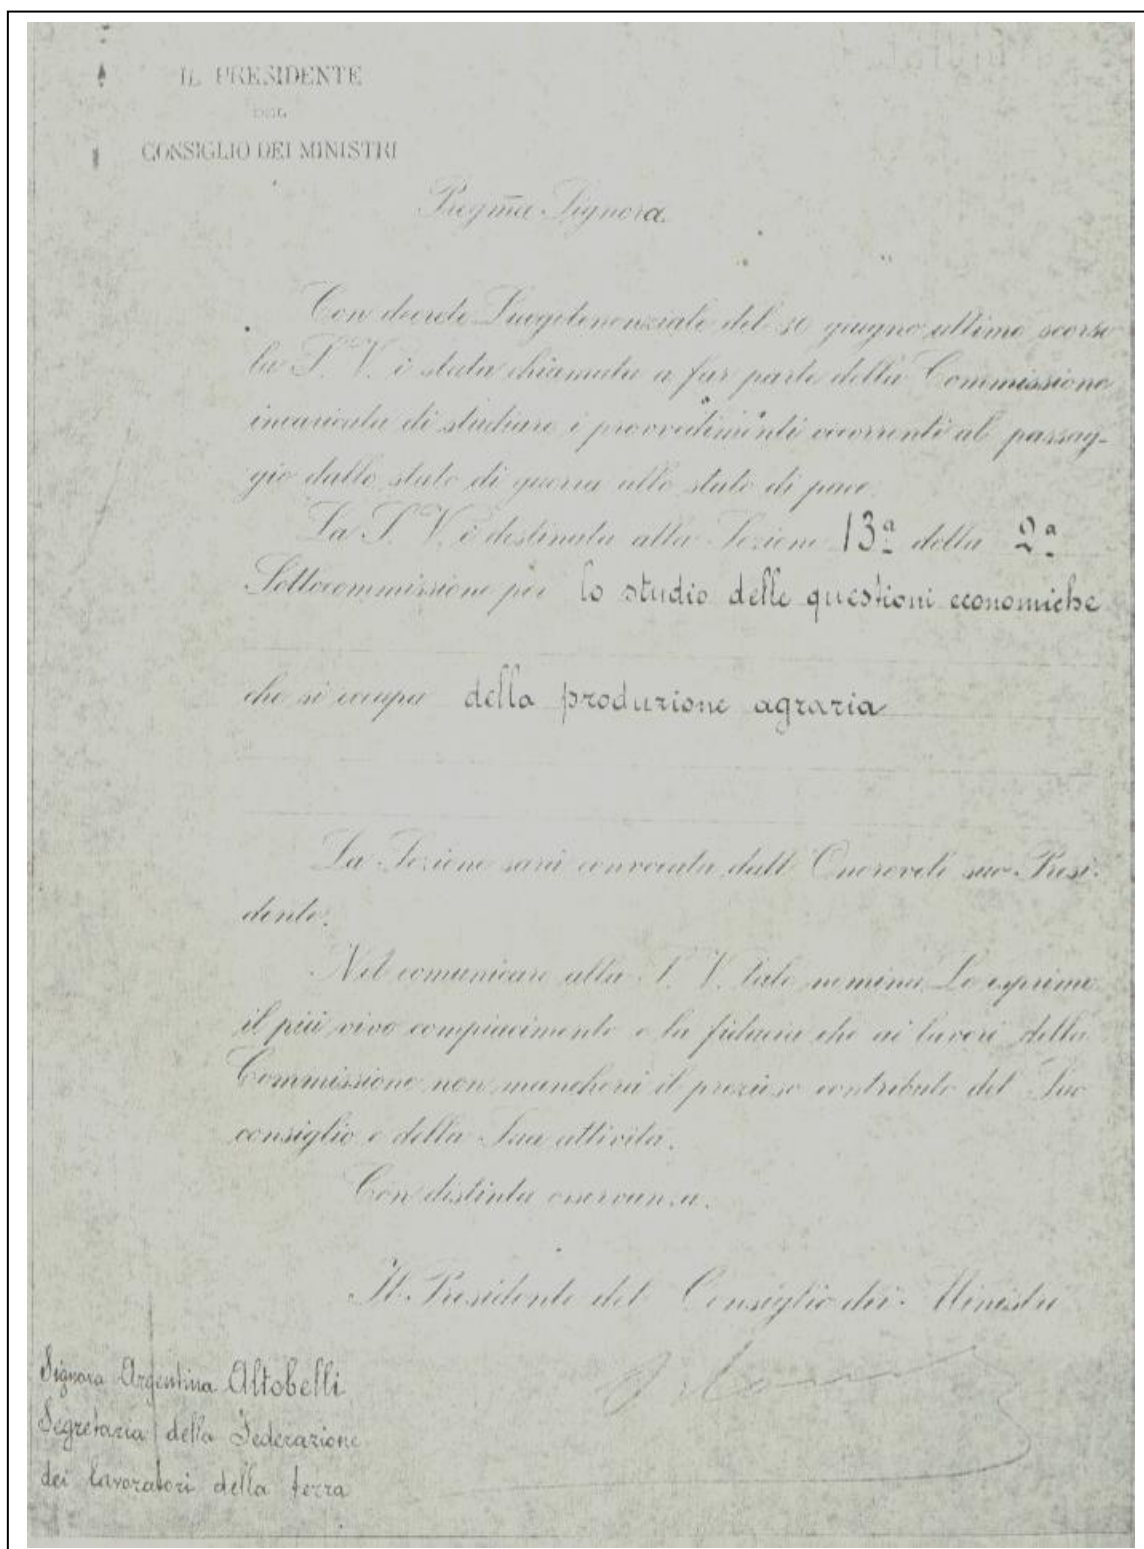 IL PRESIDENTE
DEL
CONSIGLIO DEI MINISTRI
Pregma Signora
Con decreto Luogotenenziale del giugno ultimo scorso
la S. V. è stata chiamata a far parte della Commissione
incaricata di studiare i provvedimenti occorrenti al passag-
gio dallo stato di guerra allo stato di pace.
La S. V. è destinata alla Sezione 13ª della 2ª
Sottocommissione per lo studio delle questioni economiche
che si occupa della produzione agraria
La Sezione sarà convocata dall' Onorevole suo Presi-
dente.
Nel comunicare alla S. V. tale nomina Le esprimo
il più vivo compiacimento e la fiducia che ai lavori della
Commissione non mancherà il prezioso contributo del Suo
consiglio e della Sua attività.
Con distinta osservanza.
Il Presidente del Consiglio dei Ministri
Signora Argentina Altobelli
Segretaria della Federazione
dei lavoratori della terra